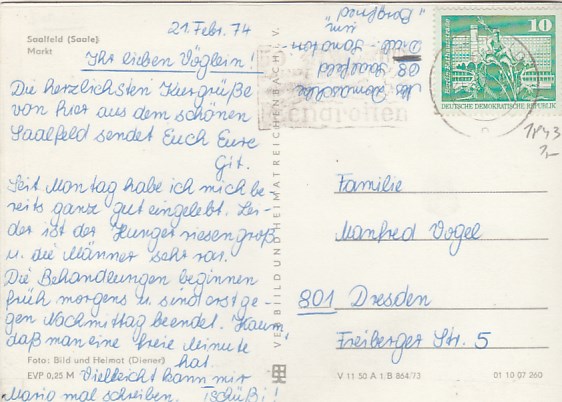 Saalfeld (Saale)
Markt
21. Febr. 74
Ihr lieben Vöglein!
Die herzlichsten Kurgrüße
von hier aus dem schönen
Saalfeld sendet Euch Eure
Git.
Seit Montag habe ich mich be-
reits ganz gut eingelebt. Lei-
der ist der Hunger riesengroß
u. die Männer sehr rar.
Die Behandlungen beginnen
früh morgens u. sind erst ge-
gen Nachmittag beendet. Kaum
daß man eine freie Minute
hat.
Vielleicht kann mir
Mario mal schreiben. Tschüß!
Foto: Bild und Heimat (Diener)
EVP 0,25 M
VEB BILD UND HEIMAT REICHENBACH I. V.
68 Saalfeld
"Bergfried"
10
DEUTSCHE DEMOKRATISCHE REPUBLIK
Familie
Manfred Vogel
801 Dresden
Freiberger Str. 5
V 11 50 A 1. B 864/73
01 10 07 260